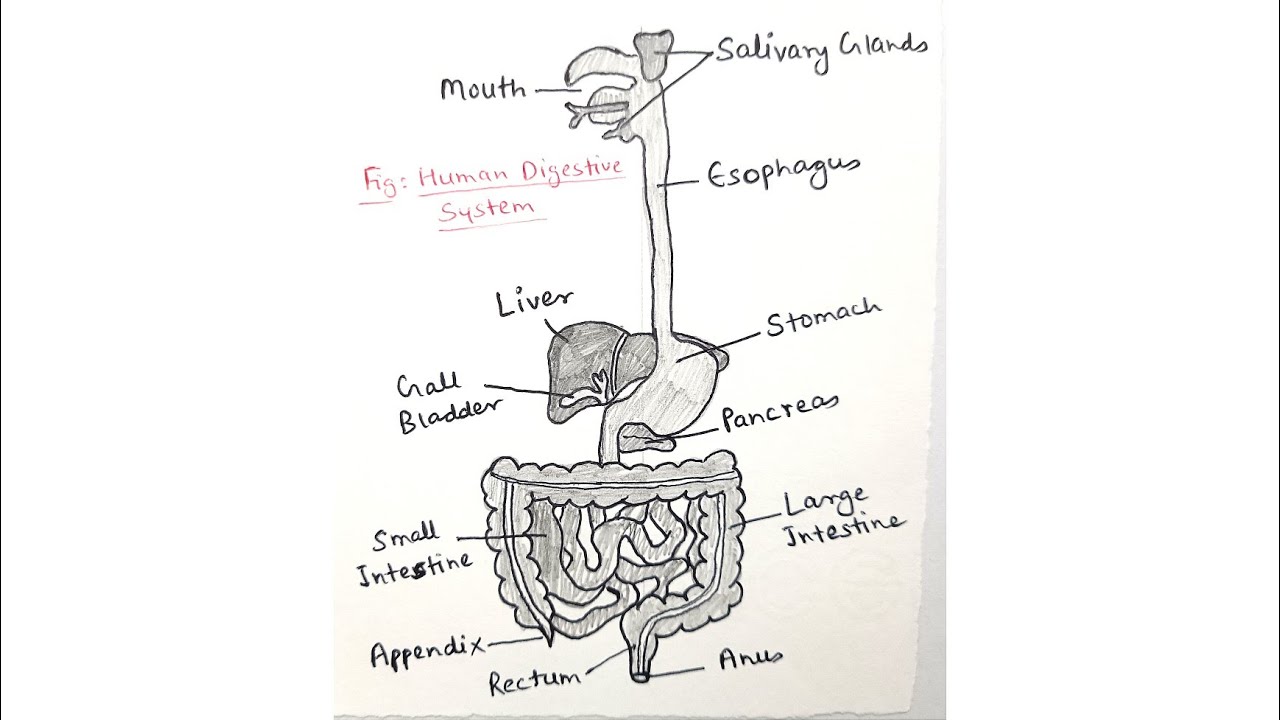 Salivary Glands
Mouth
Esophagus
Fig: Human Digestive
System
Liver
Stomach
Gall
Bladder
Pancreas
Large
Intestine
Small
Intestine
Appendix
Rectum
Anus